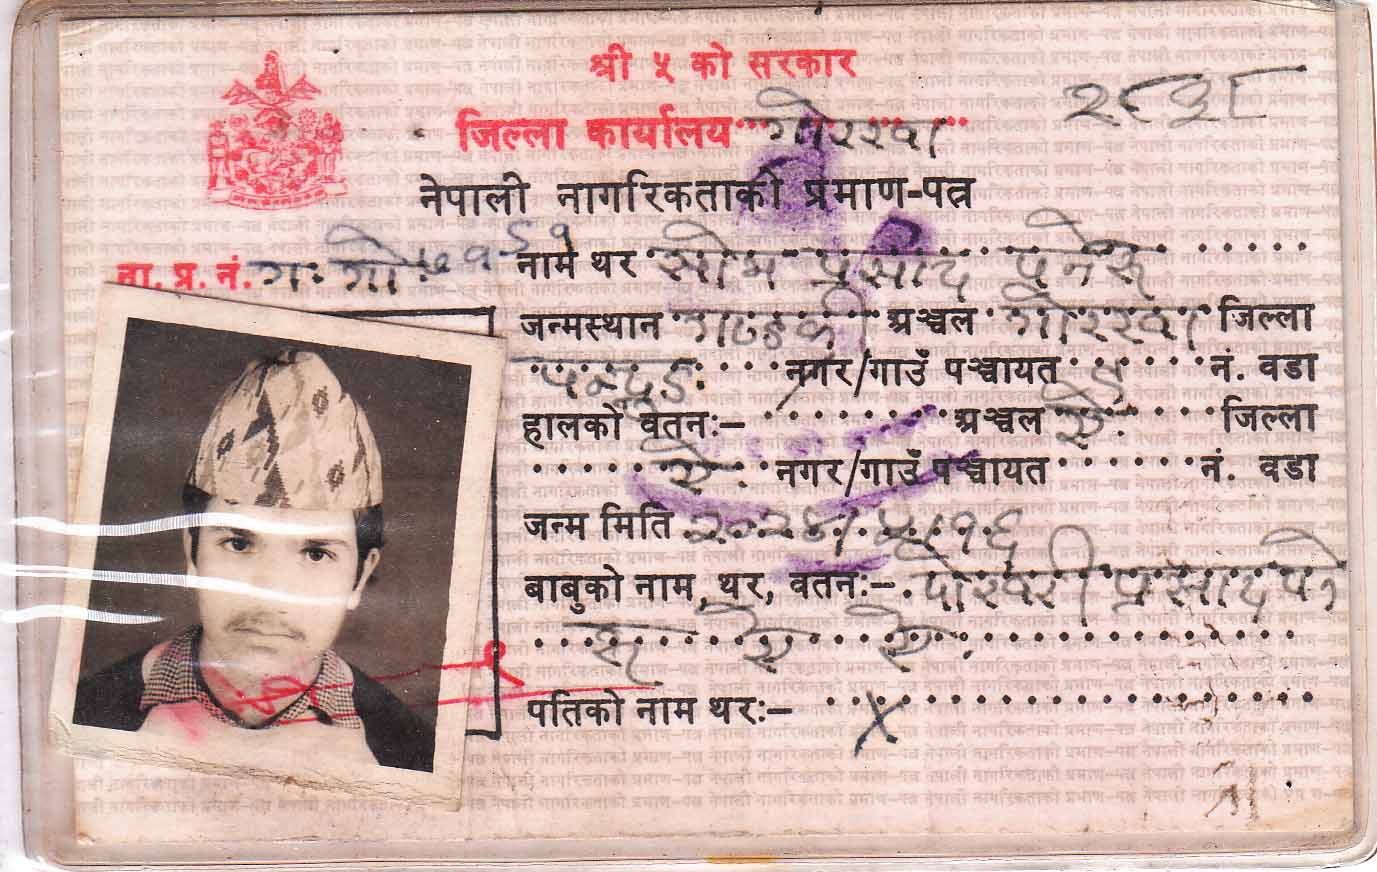 श्री ५ को सरकार
जिल्ला कार्यालय गोरखा
नेपाली नागरिकताको प्रमाण-पत्र
ना. प्र. नं. ग. गो.
नाम थर सोम प्रसाद पनेरू
जन्मस्थान गण्डकी अञ्चल गोरखा जिल्ला
नगर/गाउँ पञ्चायत नं. वडा
हालको वतनः- अञ्चल ऐ. जिल्ला
ऐ. नगर/गाउँ पञ्चायत नं. वडा
जन्म मिति २०२४।५।१६
बाबुको नाम, थर, वतनः- प्रसाद पने
रू ऐ ऐ.
पतिको नाम थरः- X